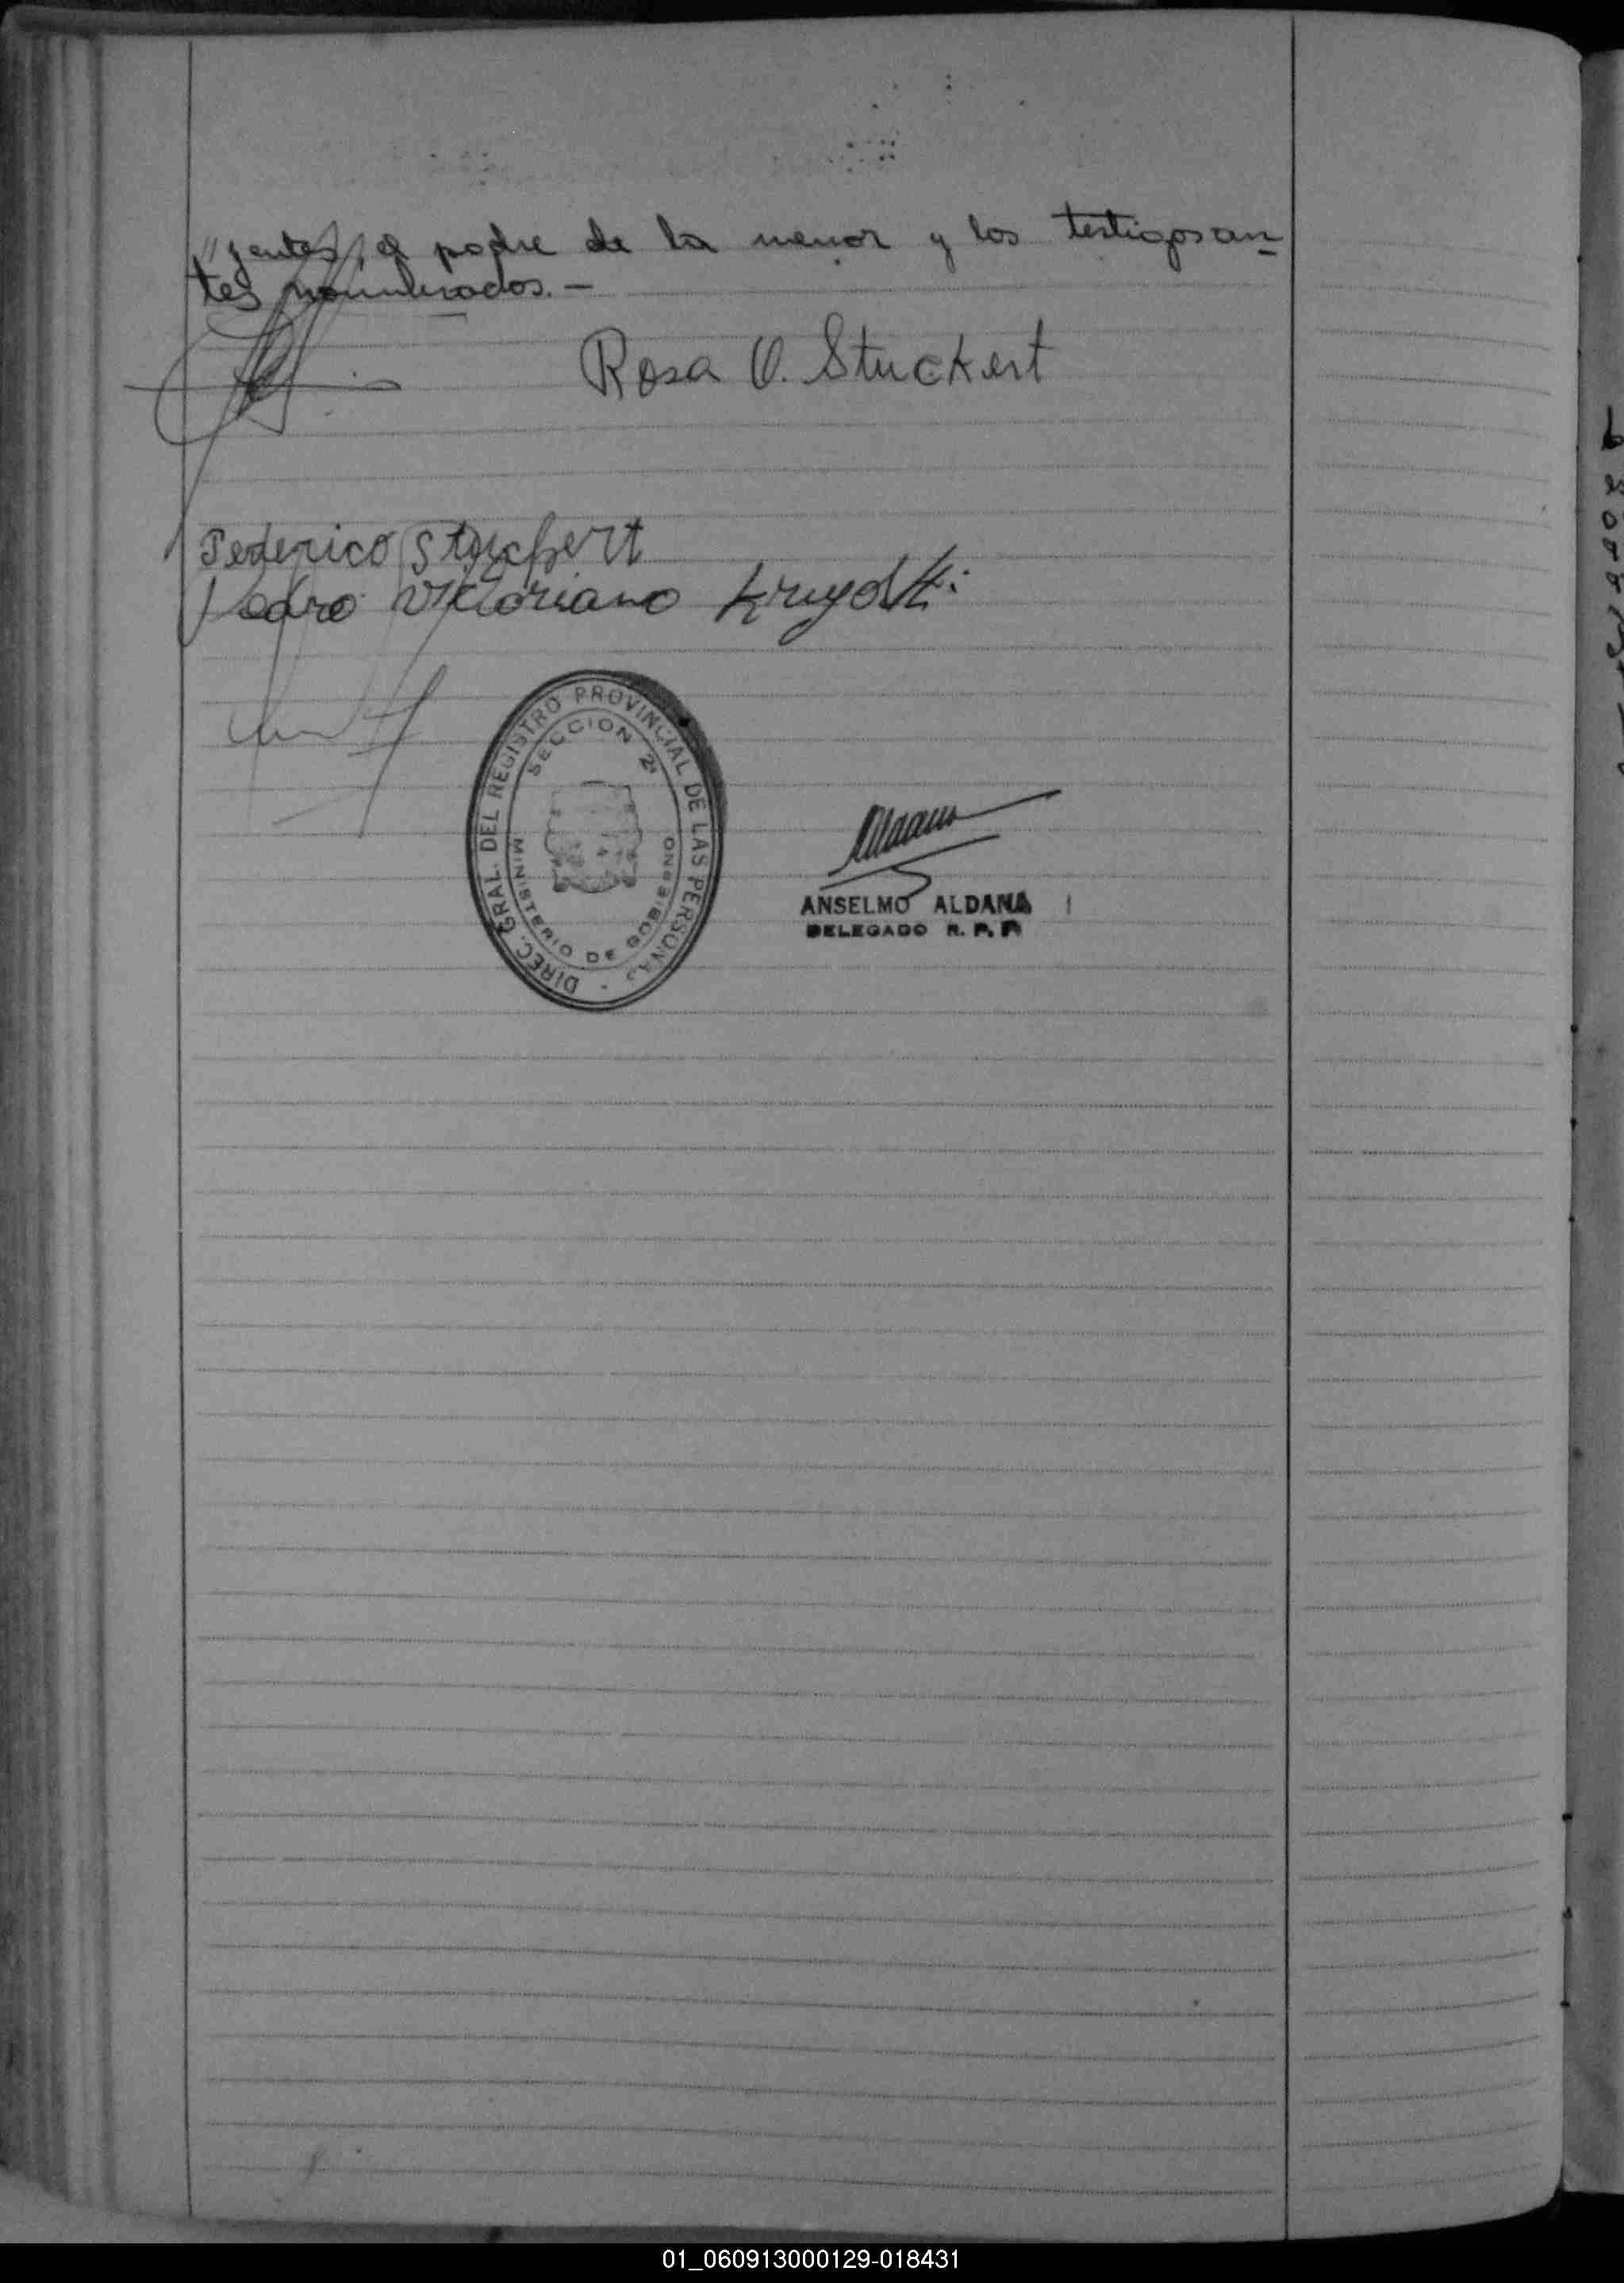 "yentes, el padre de la menor y los testigos an-
tes nombrados. —
Rosa O. Stuckert
Federico Stuckert
Pedro Victoriano
DIREC. GRAL. DEL REGISTRO PROVINCIAL DE LAS PERSONAS -
SECCION 2ª
MINISTERIO DE GOBIERNO
ANSELMO ALDANA
DELEGADO R. P. P
01_060913000129-018431